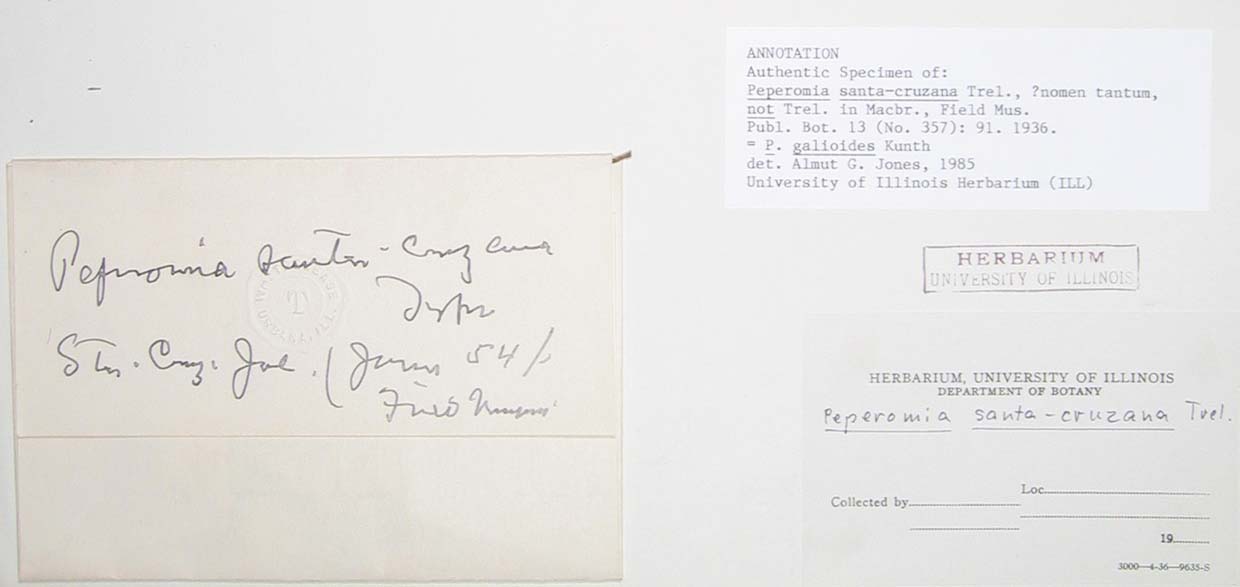 ANNOTATION
Authentic Specimen of:
Peperomia santa-cruzana Trel., ?nomen tantum,
not Trel. in Macbr., Field Mus.
Publ. Bot. 13 (No. 357): 91. 1936.
= P. galioides Kunth
det. Almut G. Jones, 1985
University of Illinois Herbarium (ILL)
Peperomia santa-cruzana
Type
Sta. Cruz.
54/
Field Museum
T
URBANA, ILL.
HERBARIUM
UNIVERSITY OF ILLINOIS
HERBARIUM, UNIVERSITY OF ILLINOIS
DEPARTMENT OF BOTANY
Peperomia santa-cruzana Trel.
Loc.
Collected by
19
3000—4-36—9635-S